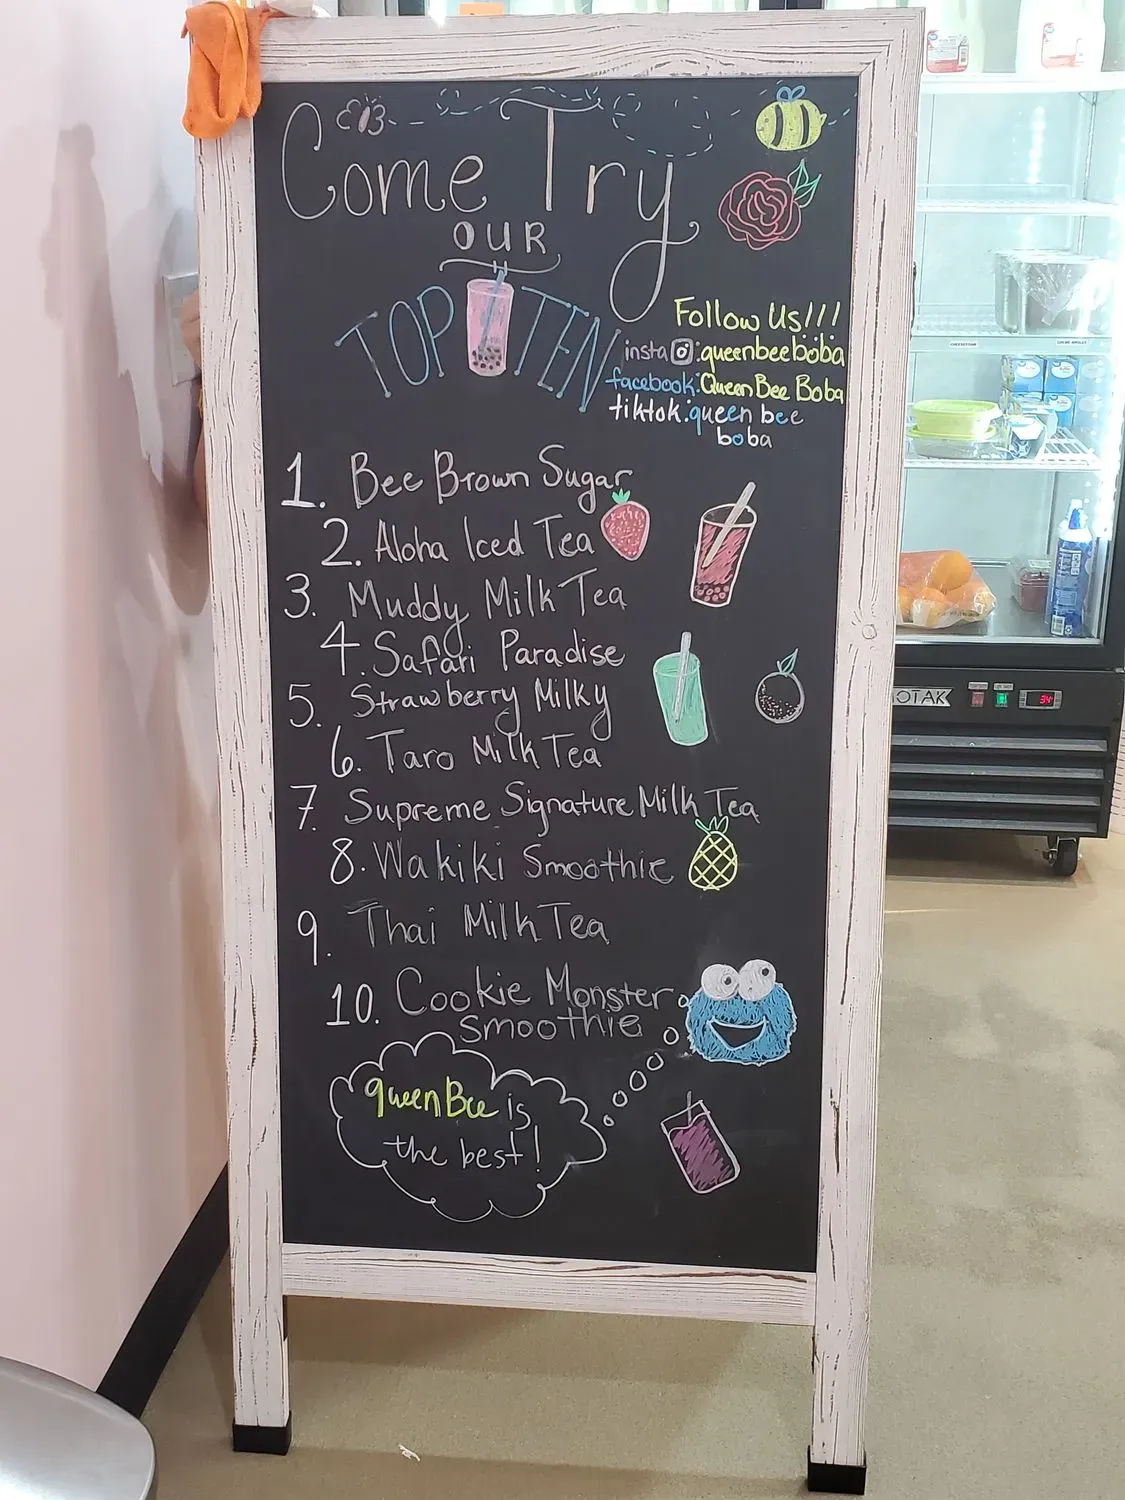 Come Try
OUR
TOP TEN
Follow Us!!!
insta :queenbeeboba
facebook:QueenBee Boba
tiktok:queen bee
boba
1. Bee Brown Sugar
2. Aloha Iced Tea
3. Muddy Milk Tea
4. Safari Paradise
5. Strawberry Milky
6. Taro Milk Tea
7. Supreme Signature Milk Tea
8. Wakiki Smoothie
9. Thai Milk Tea
10. Cookie Monster
smoothie
queenBee is
the best!
OTAK
34